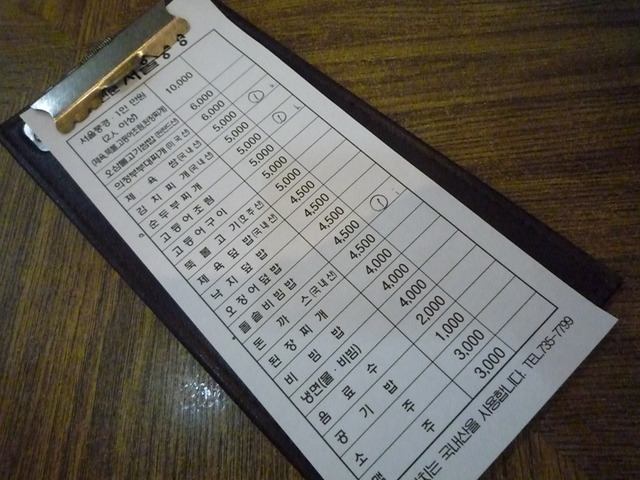 서울
서울뚱경 1인 만원 10,000
(2人 이상)
오삼불고기정밥 6,000
의정부부대찌개(미국산) 6,000
제육쌈(국내산) 5,000 ①
김치찌개(국내산) 5,000 ①
순두부찌개 5,000
고등어조림 5,000
고등어구이 5,000
뚝불고기(호주산) 5,000
제육덮밥(국내산) 4,500
낙지덮밥 4,500
오징어덮밥 4,500 ①
돌솥비빔밥 4,500
돈까스(국내산) 4,000
된장찌개 4,000
비빔밥 4,000
냉면(물·비빔)
음료수 2,000
공기밥 1,000
소주 3,000
맥주 3,000
치는 국내산을 사용합니다. TEL735-7799